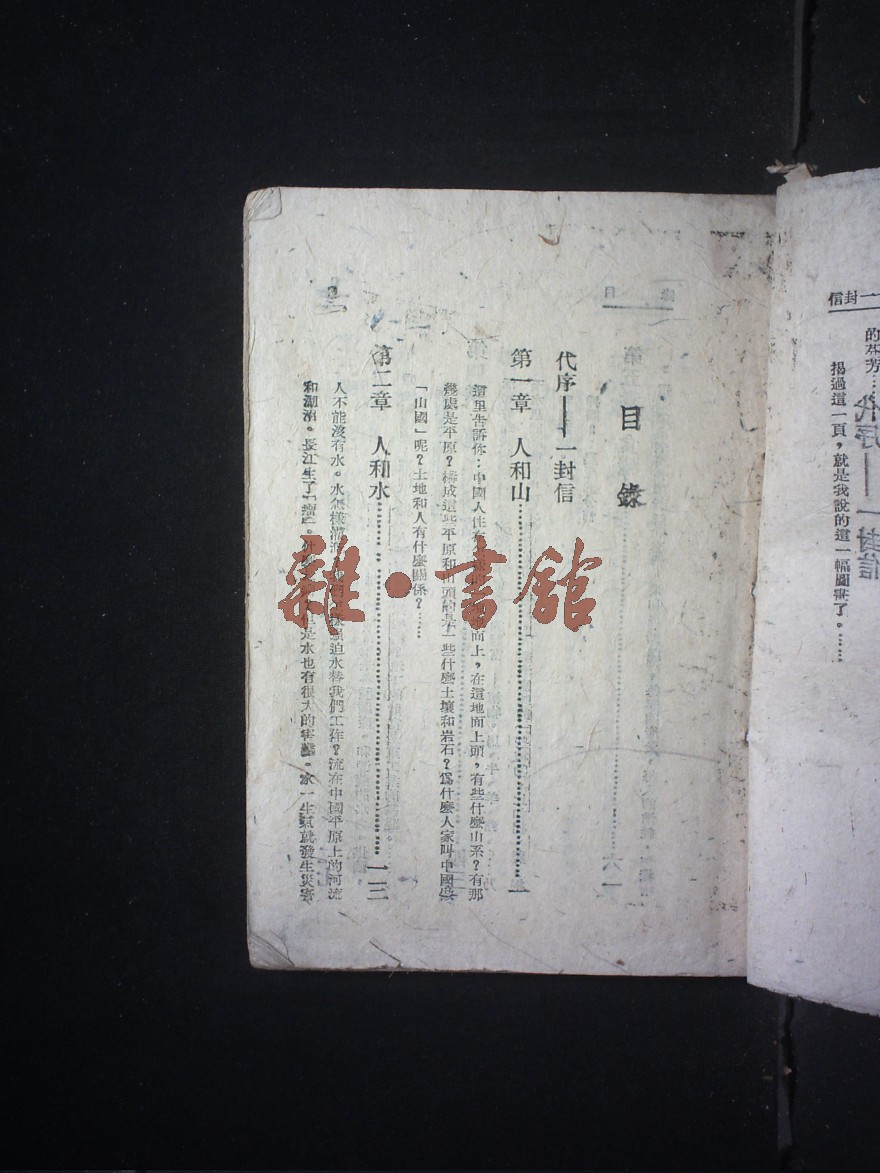 一封信
的芬芳……
揭過這一頁，就是我說的這一幅圖畫了。……
目錄
代序——一封信
第一章 人和山……一
這里告訴你：中國人住在 地面上，在這地面上頭，有些什麼山系？有那
幾處是平原？構成這些平原和山頭的是一些什麼土壤和岩石？爲什麼人家叫中國爲
「山國」呢？土地和人有什麼關係？……
第二章 人和水……一三
人不能沒有水。水怎樣 強迫水替我們工作？流在中國平原上的河流
和湖沼。長江生了「瘤」。 是水也有很大的害處。家一生氣就發生災害
雜·書館